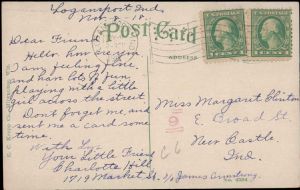 Logansport Ind.
Nov. 8-18.
Post Card
Dear Friend
Hello, how are you.
I am feeling fine,
and have lots of fun
playing with a little
girl across the street
Dont forget me and
send me a card some
time.
With Love
Your Little Friend
Charlotte Hill
1719 Market St.
ADDRESS
Miss Margaret Clinton
E. Broad St.
New Castle,
Ind.
c/o James Armstrong.